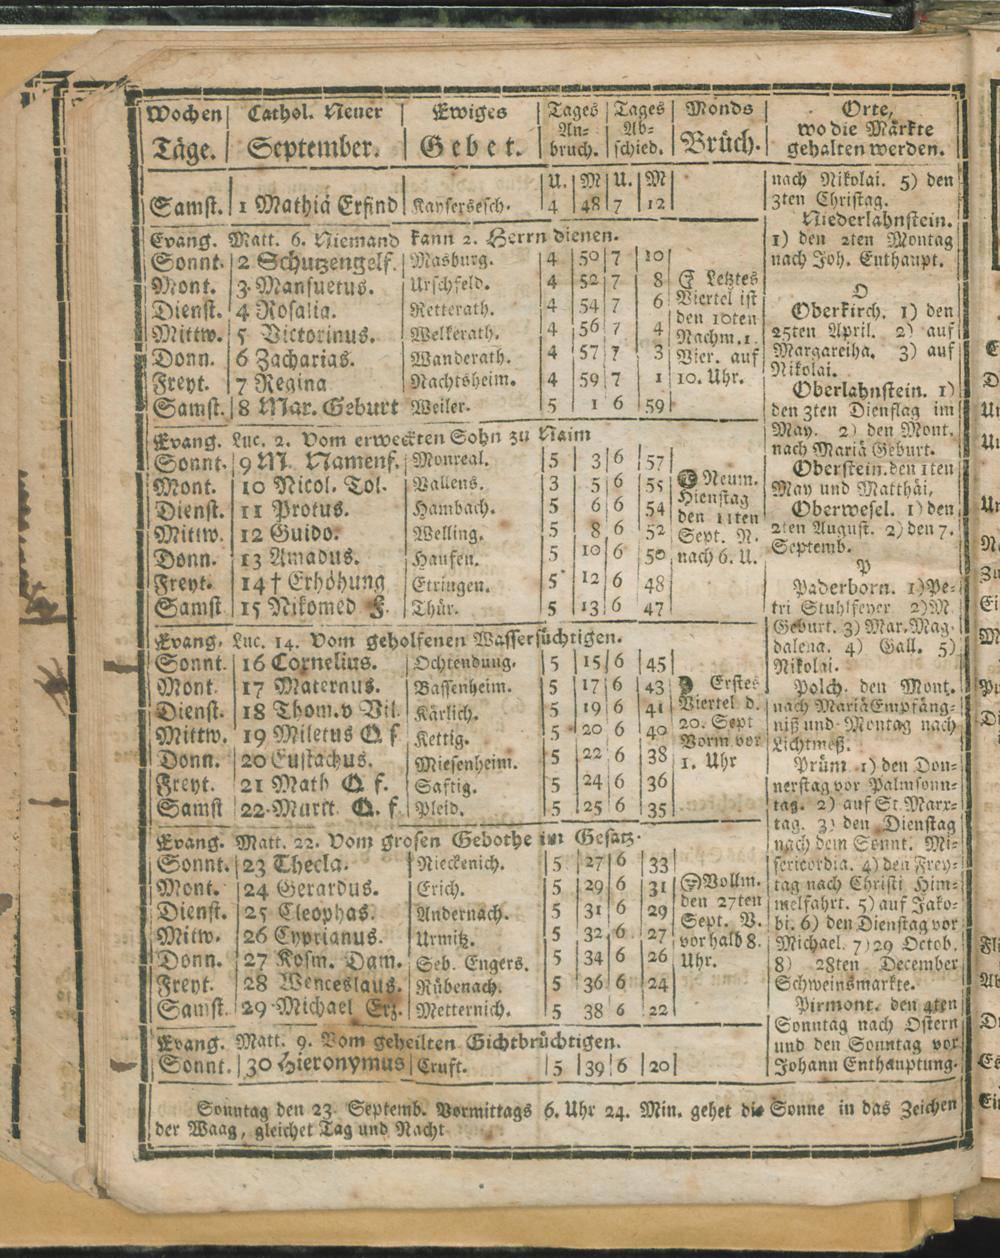 Wochen Täge. | Cathol. Neuer September. | Ewiges Gebet. | Tages Anbruch. | Tages Abschied. | Monds Brüch. | Orte, wo die Märkte gehalten werden.
U. M U. M
Samst. 1 Mathiä Erfind Kaysersesch. 4 48 7 12
Evang. Matt. 6. Niemand kann 2. Herrn dienen.
Sonnt. 2 Schutzengelf. Masburg. 4 50 7 10
Mont. 3 Mansuetus. Urschfeld. 4 52 7 8
Dienst. 4 Rosalia. Retterath. 4 54 7 6
Mittw. 5 Victorinus. Welkerath. 4 56 7 4
Donn. 6 Zacharias. Wanderath. 4 57 7 3
Freyt. 7 Regina Nachtsheim. 4 59 7 1
Samst. 8 Mar. Geburt Weiler. 5 1 6 59
Evang. Luc. 2. Vom erweckten Sohn zu Naim
Sonnt. 9 M. Namenf. Monreal. 5 3 6 57
Mont. 10 Nicol. Tol. Vallens. 3 5 6 55
Dienst. 11 Protus. Hambach. 5 6 6 54
Mittw. 12 Guido. Welling. 5 8 6 52
Donn. 13 Amadus. Hausen. 5 10 6 50
Freyt. 14 † Erhöhung Etringen. 5 12 6 48
Samst 15 Nikomed Thür. 5 13 6 47
Evang. Luc. 14. Vom geholfenen Wassersüchtigen.
Sonnt. 16 Cornelius. Ochtendung. 5 15 6 45
Mont. 17 Maternus. Bassenheim. 5 17 6 43
Dienst. 18 Thom. v Vil. Kärlich. 5 19 6 41
Mittw. 19 Miletus Q. f Kettig. 5 20 6 40
Donn. 20 Eustachus. Miesenheim. 5 22 6 38
Freyt. 21 Math Q. f. Saftig. 5 24 6 36
Samst 22 Murit. Q. f. Pleid. 5 25 6 35
Evang. Matt. 22. Vom grosen Gebothe im Gesatz.
Sonnt. 23 Thecla. Nieckenich. 5 27 6 33
Mont. 24 Gerardus. Erich. 5 29 6 31
Dienst. 25 Cleophas. Andernach. 5 31 6 29
Mitw. 26 Cyprianus. Urmitz. 5 32 6 27
Donn. 27 Kosm. Dam. Seb. Engers. 5 34 6 26
Freyt. 28 Wenceslaus. Rübenach. 5 36 6 24
Samst. 29 Michael Erz. Metternich. 5 38 6 22
Evang. Matt. 9. Vom geheilten Gichtbrüchtigen.
Sonnt. 30 Hieronymus Cruft. 5 39 6 20
Letztes
Viertel ist
den 10ten
Nachm. 1.
Vier. auf
10. Uhr.
Neum.
Hienstag
den 11ten
Sept. N.
nach 6. U.
Erstes
Viertel d.
20. Sept
Vorm vor
1. Uhr
Vollm.
den 27ten
Sept. V.
vor halb 8.
Uhr.
nach Nikolai. 5) den
3ten Christag.
Niederlahnstein.
1) den 2ten Montag
nach Joh. Enthaupt.
O
Oberkirch. 1) den
25ten April. 2) auf
Margareiha. 3) auf
Nikolai.
Oberlahnstein. 1)
den 3ten Dienstag im
May. 2) den Mont.
nach Mariä Geburt.
Oberstein. den 1ten
May und Matthäi,
Oberwesel. 1) den
2ten August. 2) den 7.
Septemb.
P
Paderborn. 1) Pe-
tri Stuhlfeyer 2) M.
Geburt. 3) Mar. Mag-
dalena. 4) Gall. 5)
Nikolai.
Polch. den Mont.
nach Mariä Empfäng-
niß und Montag nach
Lichtmeß.
Prüm 1) den Don-
nerstag vor Palmsonn-
tag. 2) auf St. Marx-
tag. 3) den Dienstag
nach dem Sonnt. Mi-
sericordia. 4) den Frey-
tag nach Christi Him-
melfahrt. 5) auf Jako-
bi. 6) den Dienstag vor
Michael. 7) 29 Octob.
8) 28ten December
Schweinsmarkte.
Pirmont. den 4ten
Sonntag nach Ostern
und den Sonntag vor
Johann Enthauptung.
Sonntag den 23. Septemb. Vormittags 6. Uhr 24. Min. gehet die Sonne in das Zeichen
der Waag, gleichet Tag und Nacht